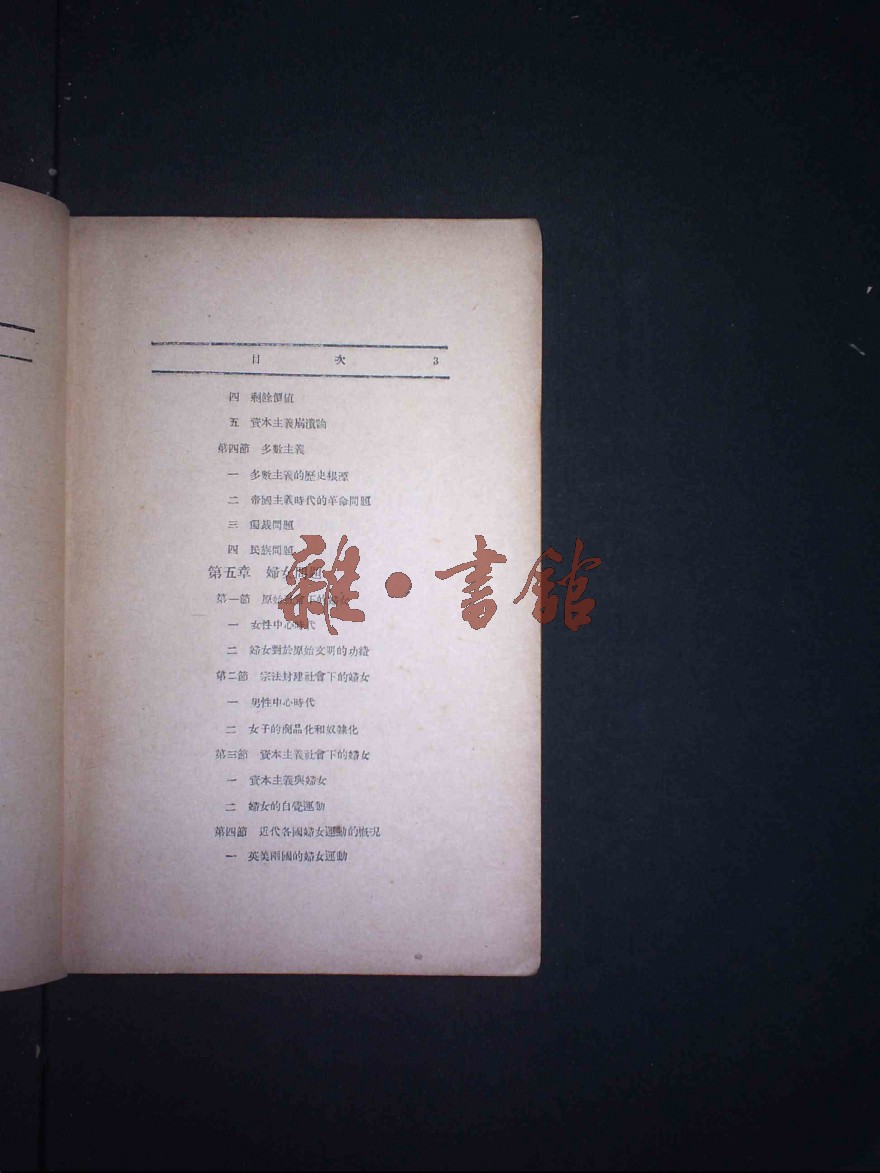 目 次 3
四 剩餘價值
五 資本主義崩潰論
第四節 多數主義
一 多數主義的歷史根源
二 帝國主義時代的革命問題
三 獨裁問題
四 民族問題
第五章 婦女問題
第一節 原始社會下的婦女
一 女性中心時代
二 婦女對於原始文明的功績
第二節 宗法封建社會下的婦女
一 男性中心時代
二 女子的商品化和奴隸化
第三節 資本主義社會下的婦女
一 資本主義與婦女
二 婦女的自覺運動
第四節 近代各國婦女運動的概況
一 英美兩國的婦女運動
雜·書館